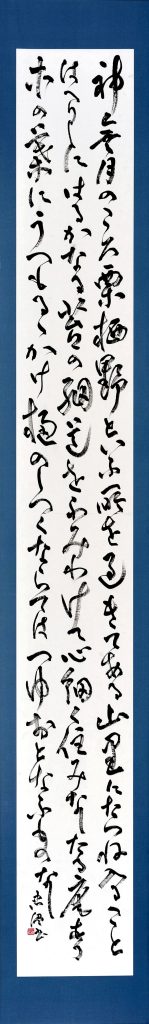 神無月のころ栗栖野といふ所を過きてある山里にたつね入ること
はへりしにはるかなる苔の細道をふみわけて心細く住みなしたる庵あり
木の葉にうつもるゝかけ樋のしつくならてはつゆおとなふものなし